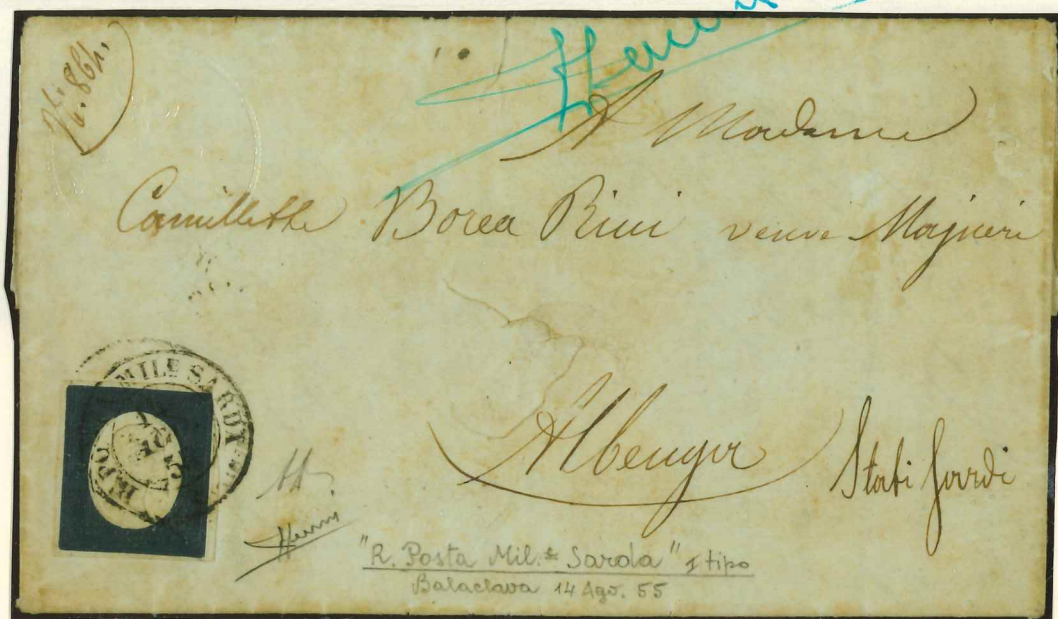 A Madame
Camillethe Borea Rini veuve Majneri
Albenga
Stati Sardi
R. POSTA MIL.E SARDA
"R. Posta Mil.e Sarda" I tipo
Balaclava 14 Ago. 55